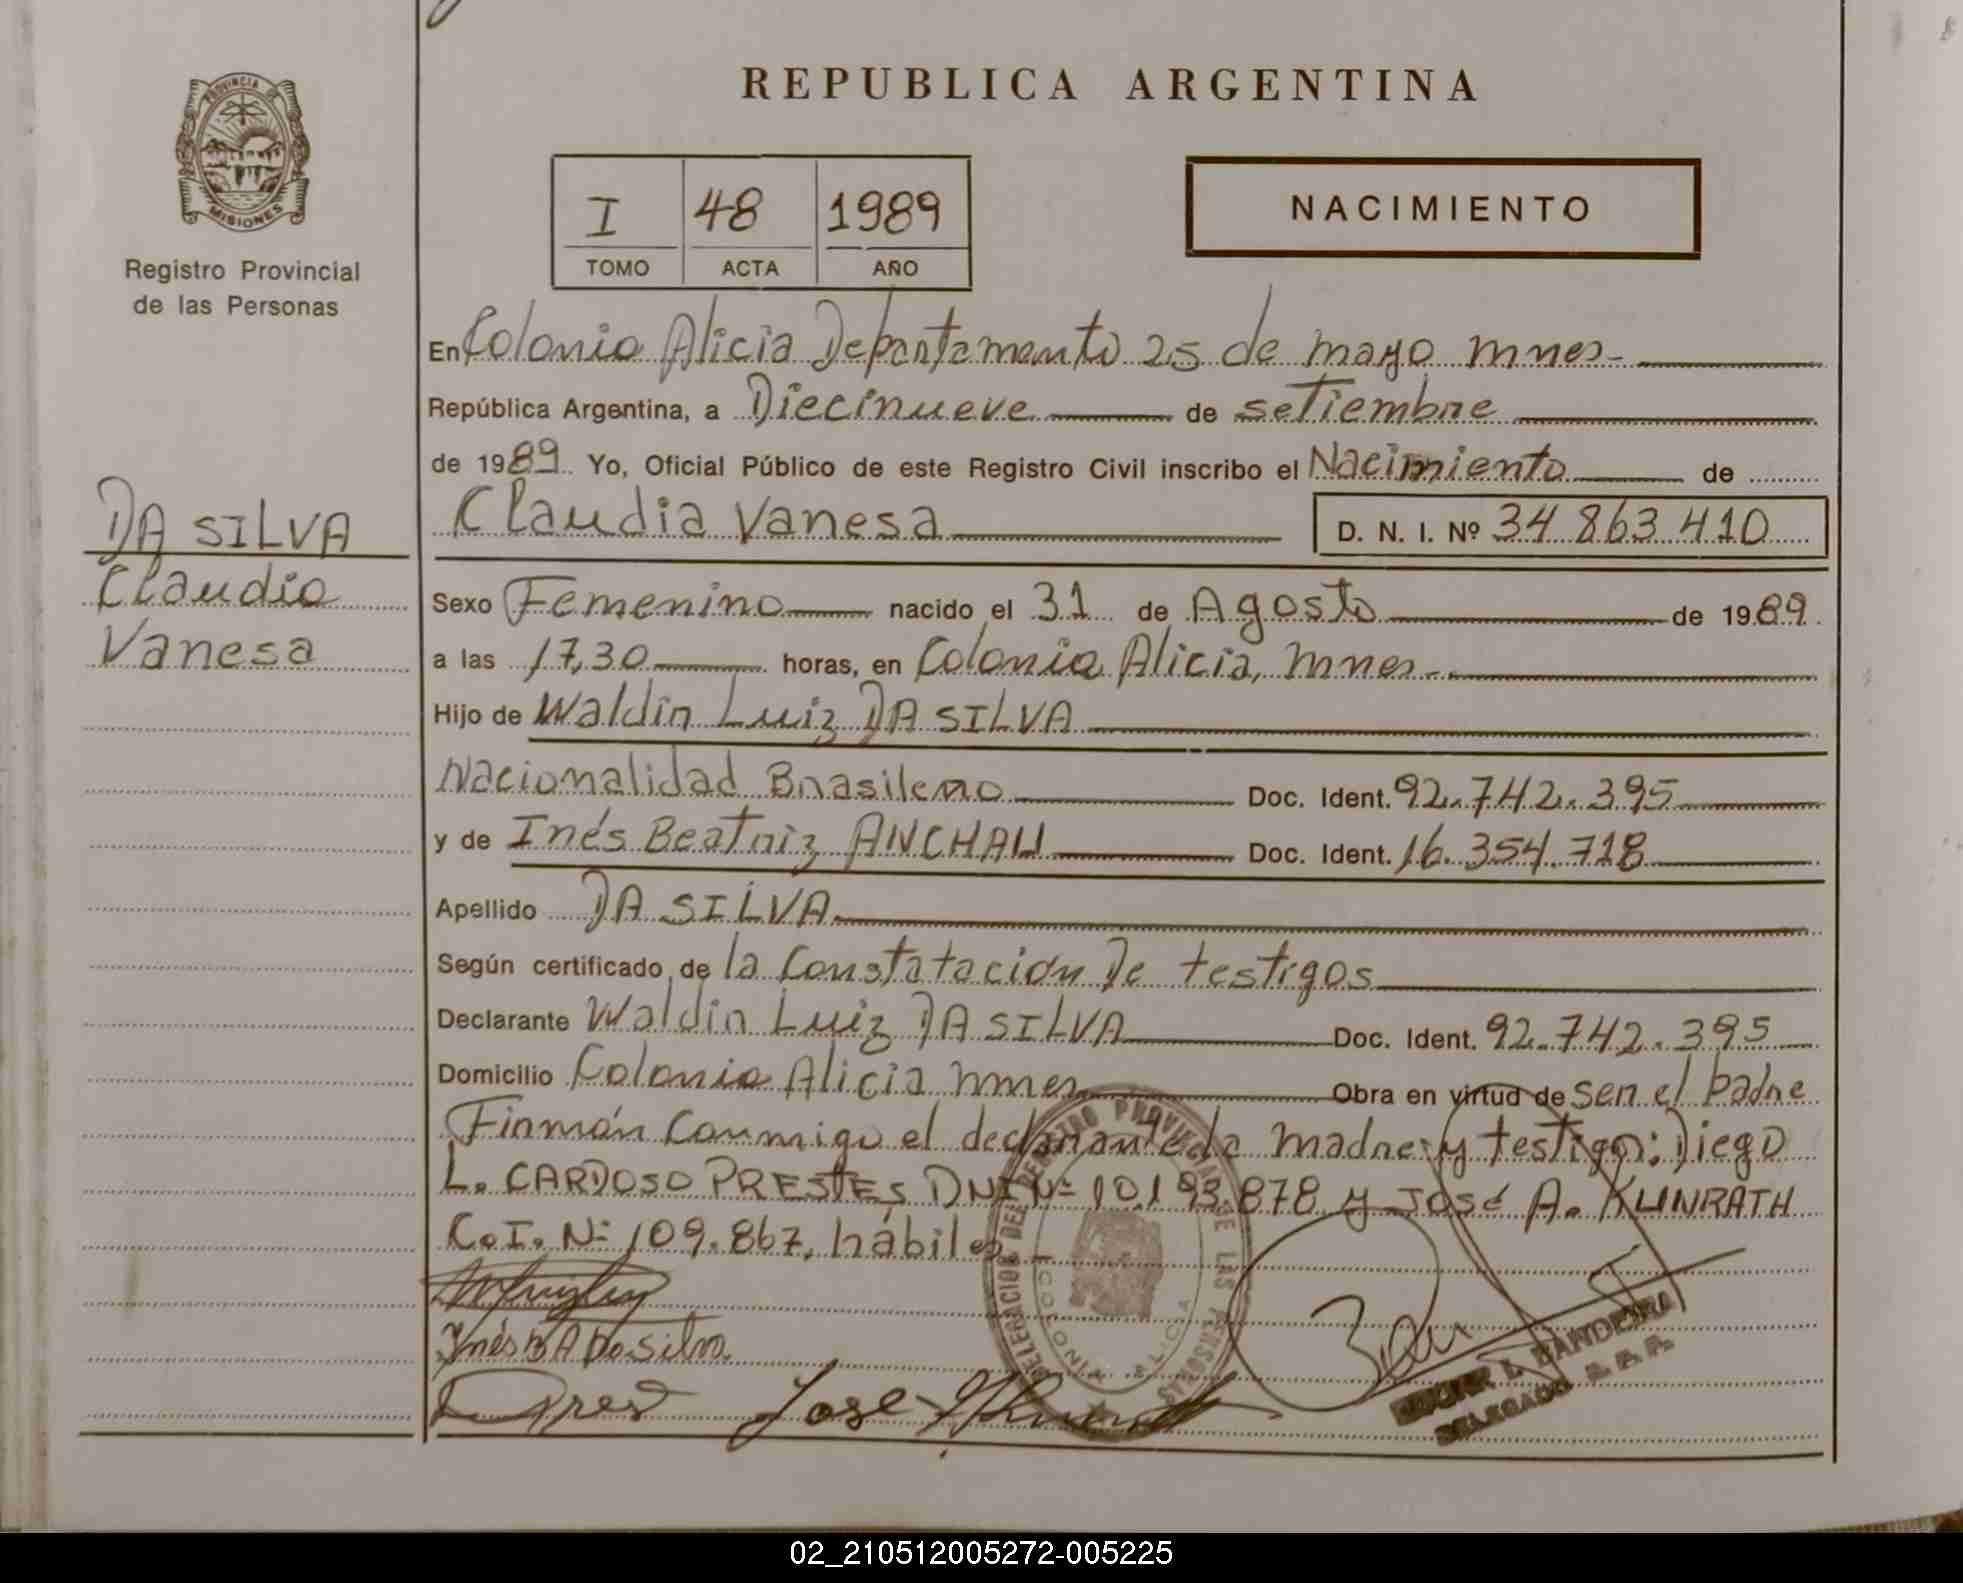 REPUBLICA ARGENTINA
PROVINCIA DE
MISIONES
Registro Provincial
de las Personas
I 48 1989
TOMO ACTA AÑO
NACIMIENTO
En Colonia Alicia Departamento 25 de mayo mnes-
República Argentina, a Diecinueve de setiembre
de 1989 Yo, Oficial Público de este Registro Civil inscribo el Nacimiento de
Claudia Vanesa D. N. I. Nº 34.863.410
DA SILVA
Claudia
Vanesa
Sexo Femenino nacido el 31 de Agosto de 1989
a las 17,30 horas, en Colonia Alicia, mnes-
Hijo de Waldin Luiz DA SILVA
Nacionalidad Brasileno Doc. Ident. 92.742.395
y de Inés Beatriz ANCHAU Doc. Ident. 16.354.718
Apellido DA SILVA
Según certificado de la Constatación De testigos
Declarante Waldin Luiz DA SILVA Doc. Ident. 92.742.395
Domicilio Colonia Alicia mnes Obra en virtud de ser el padre
Firmán conmigo el declarante la madre y testigos: Diego
L. CARDOSO PRESTES DNI Nº 10.193.878 y José A. KUNRATH
C.I. Nº 109.867, hábiles
Inés B A Da Silva
Jose
DELEGACION DEL REGISTRO PROVINCIAL DE LAS PERSONAS
COLONIA ALICIA
L. BANDEIRA
DELEGADO R. P. P.
02_210512005272-005225